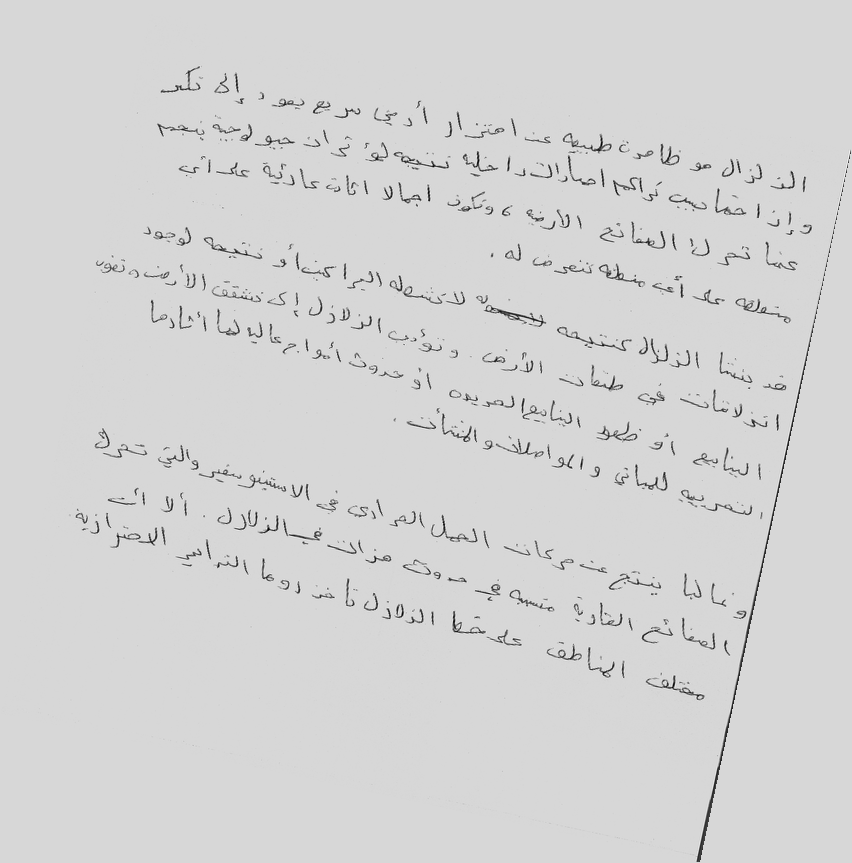 الزلزال هو ظاهرة طبيعية عن اهتزاز أرضي سريع يعود إلى تكسر
وإزاحتها بسبب تراكم اجهادات داخلية نتيجة لمؤثرات جيولوجية ينجم
عنها تحرك الصفائح الأرضية، وتكون اجمالا اثارت عادية على أي
منطقة على أي منطقة تتعرض له.
قد ينشأ الزلزال كنتيجة لانشطة البراكين أو نتيجة لوجود
انزلاقات في طبقات الأرض. وتؤدي الزلازل إلى تشقق الأرض ونضوب
الينابيع أو ظهور الينابيع الجديدة أو حدوث أمواج عالية لها أثارها
التخريبية للمباني والمواصلات والمنشأت.
وغالبا ينتج عن حركات الحمل الحراري في الاستينوسفير والتي تحرك
الصفائح القارية متسببه في حدوث هزات في الزلازل. ألا ان
مختلف المناطق على خط الزلازل تأخذ دوما التدابير الاحترازية